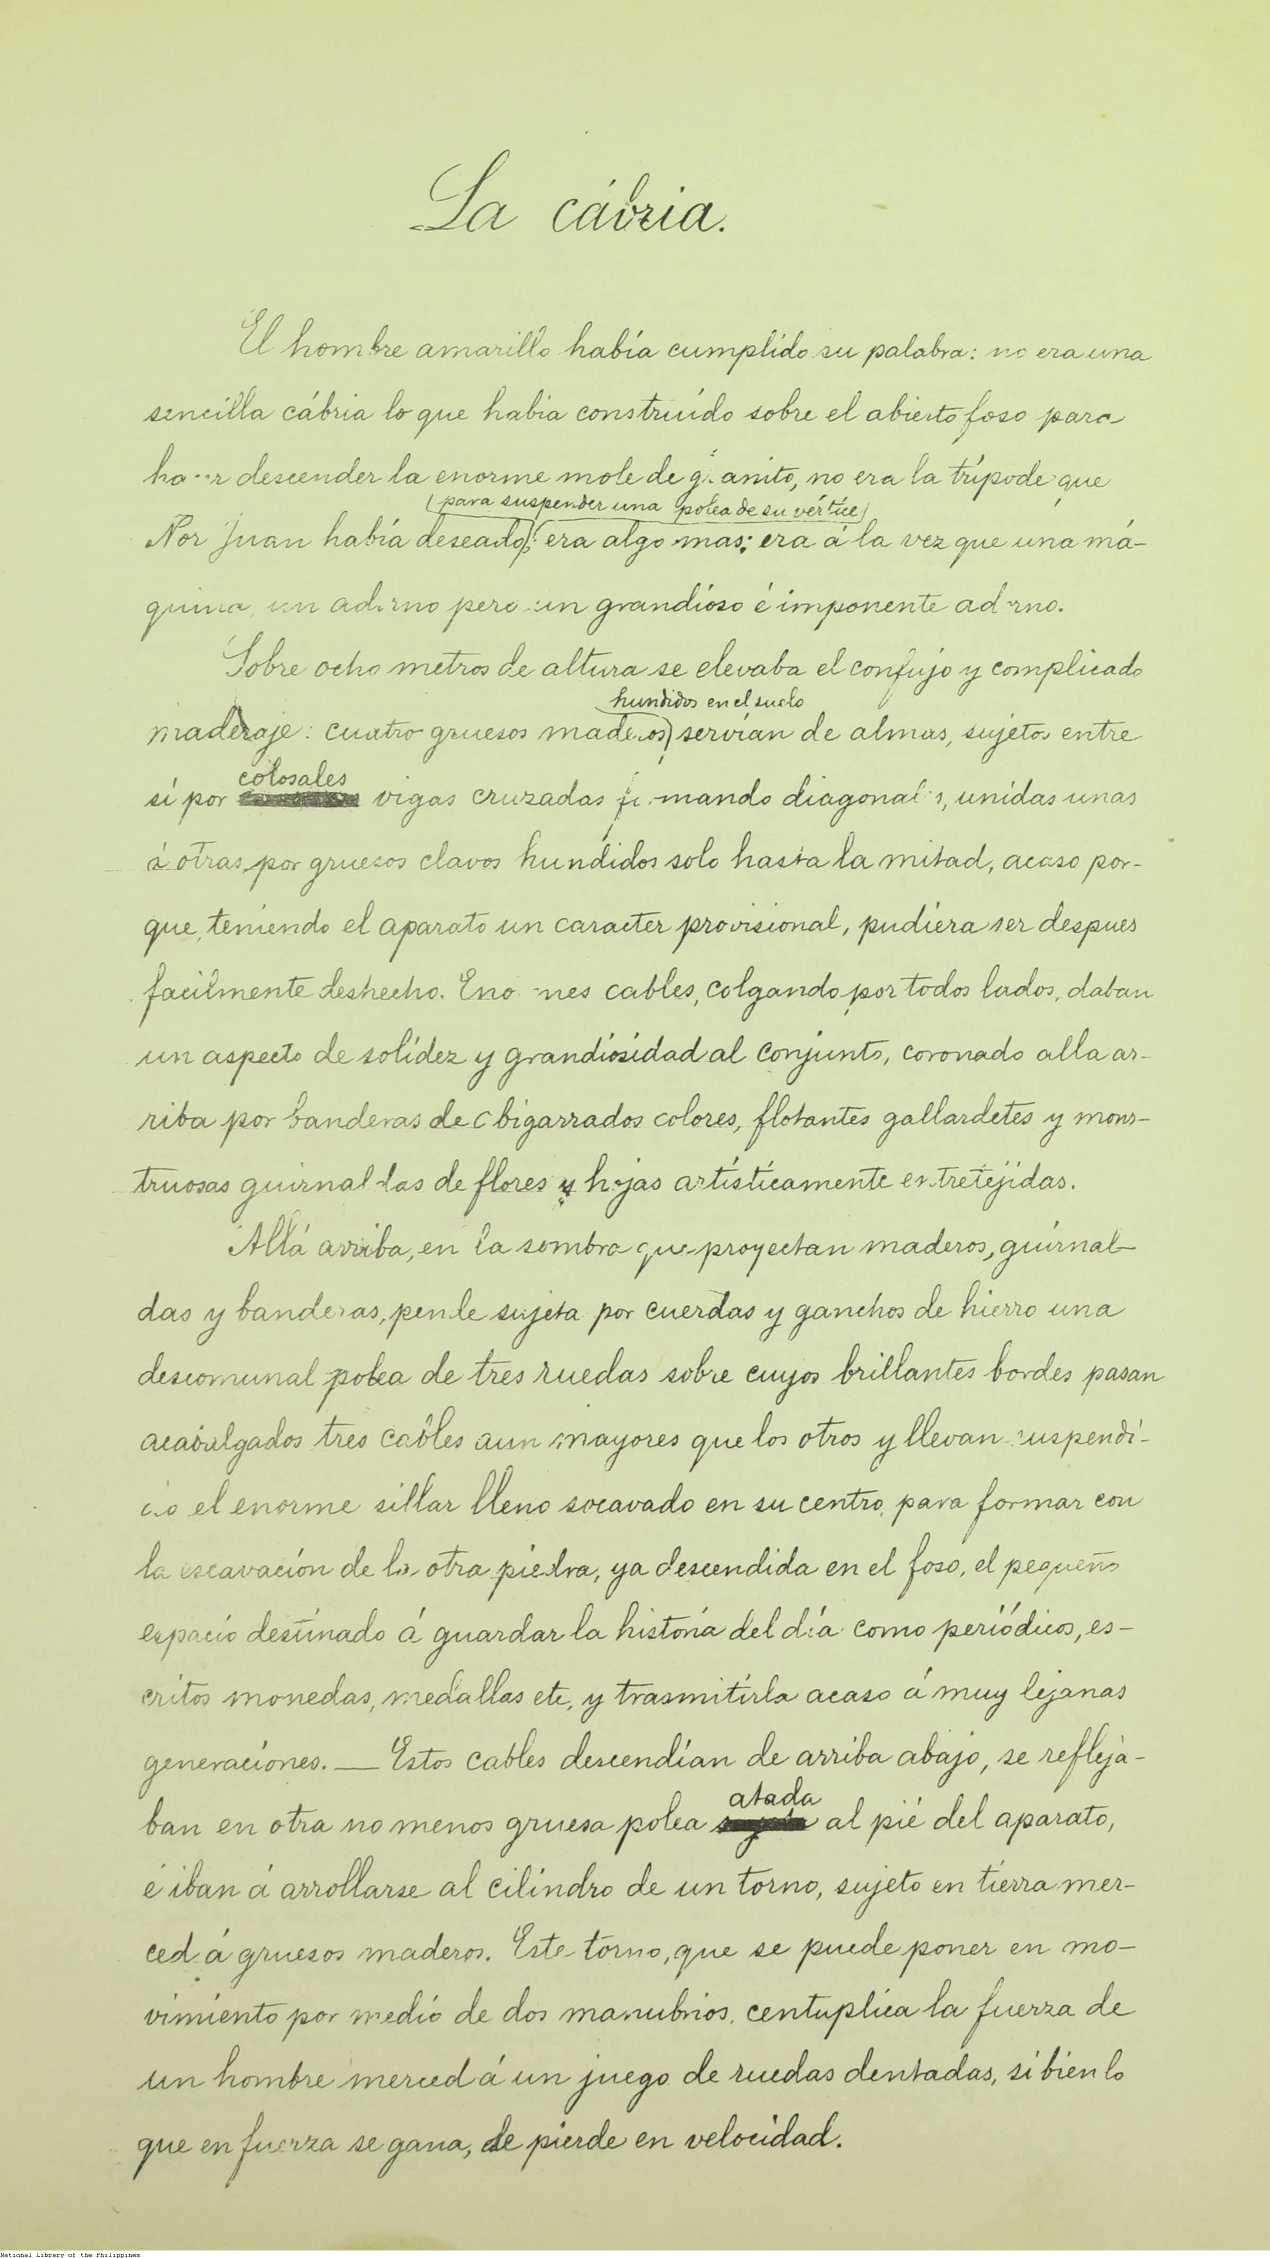 La cábria.
El hombre amarillo había cumplido su palabra: no era una
sencilla cábria lo que habia construído sobre el abierto foso para
hacer descender la enorme mole de granito, no era la trípode que
para suspender una polea de su vértice
Ñor Juan había deseado; era algo mas; era á la vez que una má-
quina, un adorno pero un grandioso é imponente adorno.
Sobre ocho metros de altura se elevaba el confujo y complicado
hundidos en el suelo
maderaje: cuatro gruesos maderos servían de almas, sujetos entre
colosales
sí por vigas cruzadas formando diagonales, unidas unas
á otras por gruesos clavos hundidos solo hasta la mitad, acaso por-
que, teniendo el aparato un caracter provisional, pudiera ser despues
facilmente deshecho. Enormes cables, colgando por todos lados, daban
un aspecto de solídez y grandiosidad al conjunto, coronado alla ar-
riba por banderas de abigarrados colores, flotantes gallardetes y mons-
truosas guirnaldas de flores y hojas artísticamente entretejidas.
Allá arriba, en la sombra que proyectan maderos, guirnal-
das y banderas, pende sujeta por cuerdas y ganchos de hierro una
descomunal polea de tres ruedas sobre cuyos brillantes bordes pasan
acabalgados tres cables aun mayores que los otros y llevan suspendi-
do el enorme sillar lleno socavado en su centro para formar con
la escavación de la otra piedra, ya descendida en el foso, el pequeño
espacio destinado á guardar la historia del día como periódicos, es-
critos monedas, medallas etc, y trasmitirla acaso á muy lejanas
generaciones. — Estos cables descendían de arriba abajo, se refleja-
atada
ban en otra no menos gruesa polea al pié del aparato,
é iban á arrollarse al cilindro de un torno, sujeto en tierra mer-
ced á gruesos maderos. Este torno, que se puede poner en mo-
vimiento por medio de dos manubrios, centuplica la fuerza de
un hombre merced á un juego de ruedas dentadas, si bien lo
que en fuerza se gana, se pierde en velocidad.
National Library of the Philippines